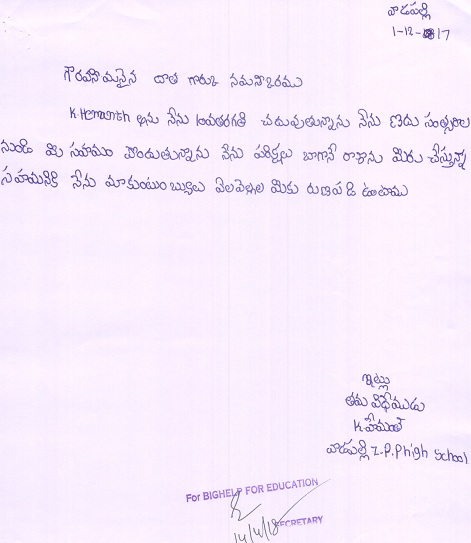 వాడపల్లి
1-12-17
గౌరవనీమనైన దాత గారుకి నమసాఒరము
K.Hemanth అను నేను 10వతరగతి చదువుతున్నాను నేను
నుండి మి సహయం పొందుతున్నాను నేను పరిక్షలు బాగానే రాశాను మిరు చేస్తున్నా
సహమనికి నేను మా కుటుంబ వేలవెల్లల మికు రుణపడి ఉంటాము
ఇట్లు
తమ విధేముడు
K హేమంత్
వాడపల్లి Z.P.P high School
For BIGHELP FOR EDUCATION
14/4/18 SECRETARY